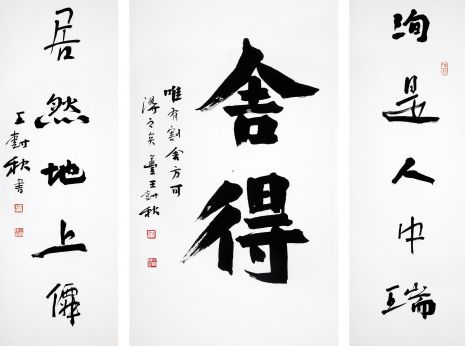 珣是人中瑞
舍得
唯有割舍方可
得之矣 王秋
居然地上僊
王秋書